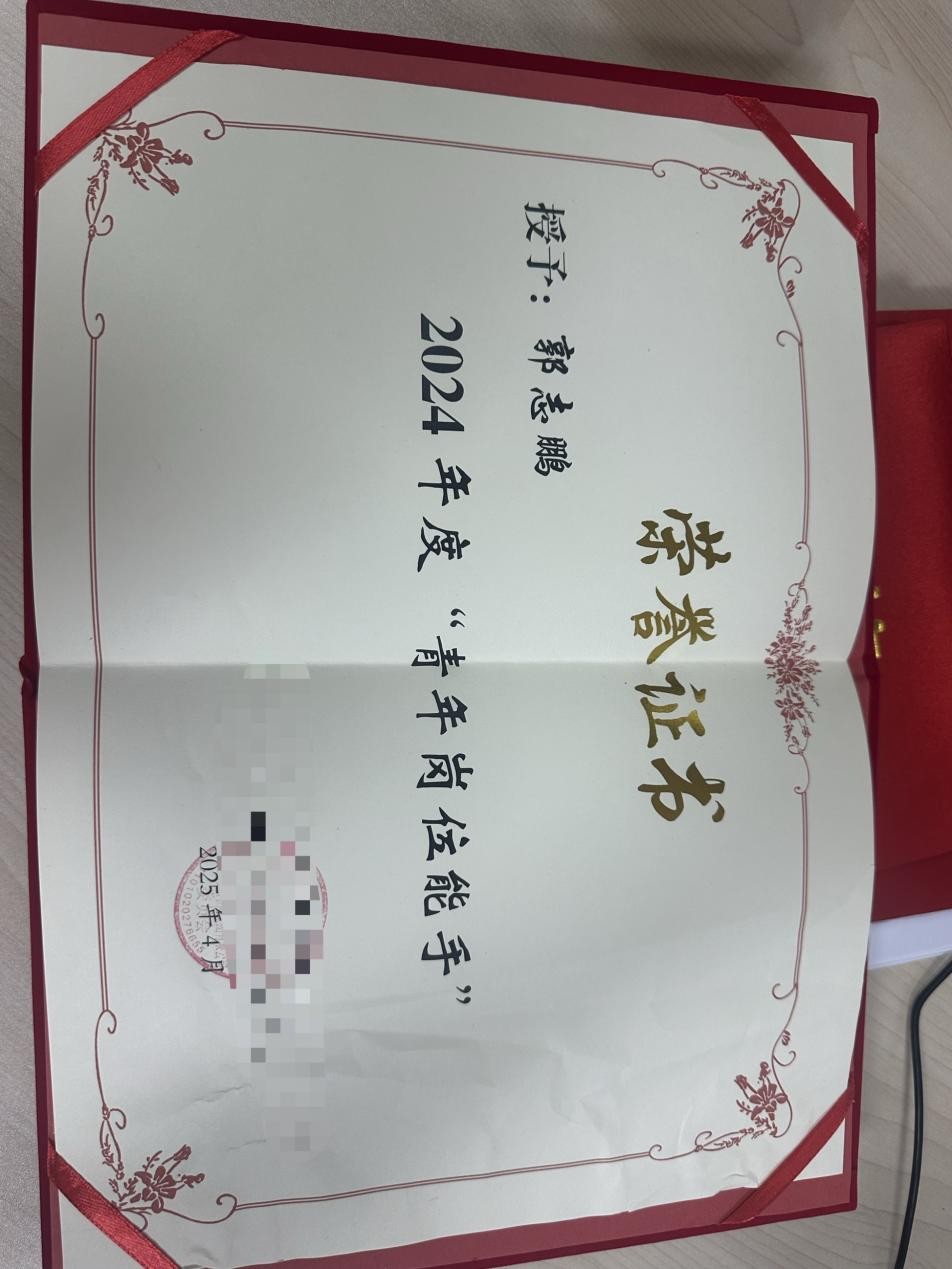 荣誉证书
授予：郭志鹏
2024年度“青年岗位能手”
2025年4月